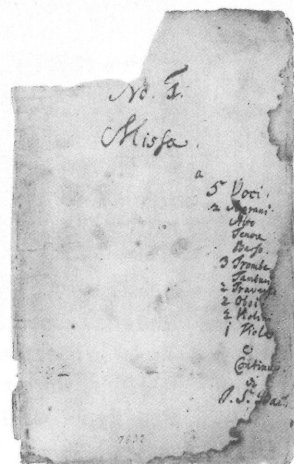 No. 1.
Missa.
a
5 Voci.
2 Soprani
Alto
Tenore
Basso.
3 Trombe
Tamburi
2 Travers
2 Oboi
2 Violini
1 Viola
e
Continuo
di
J. S. Bac